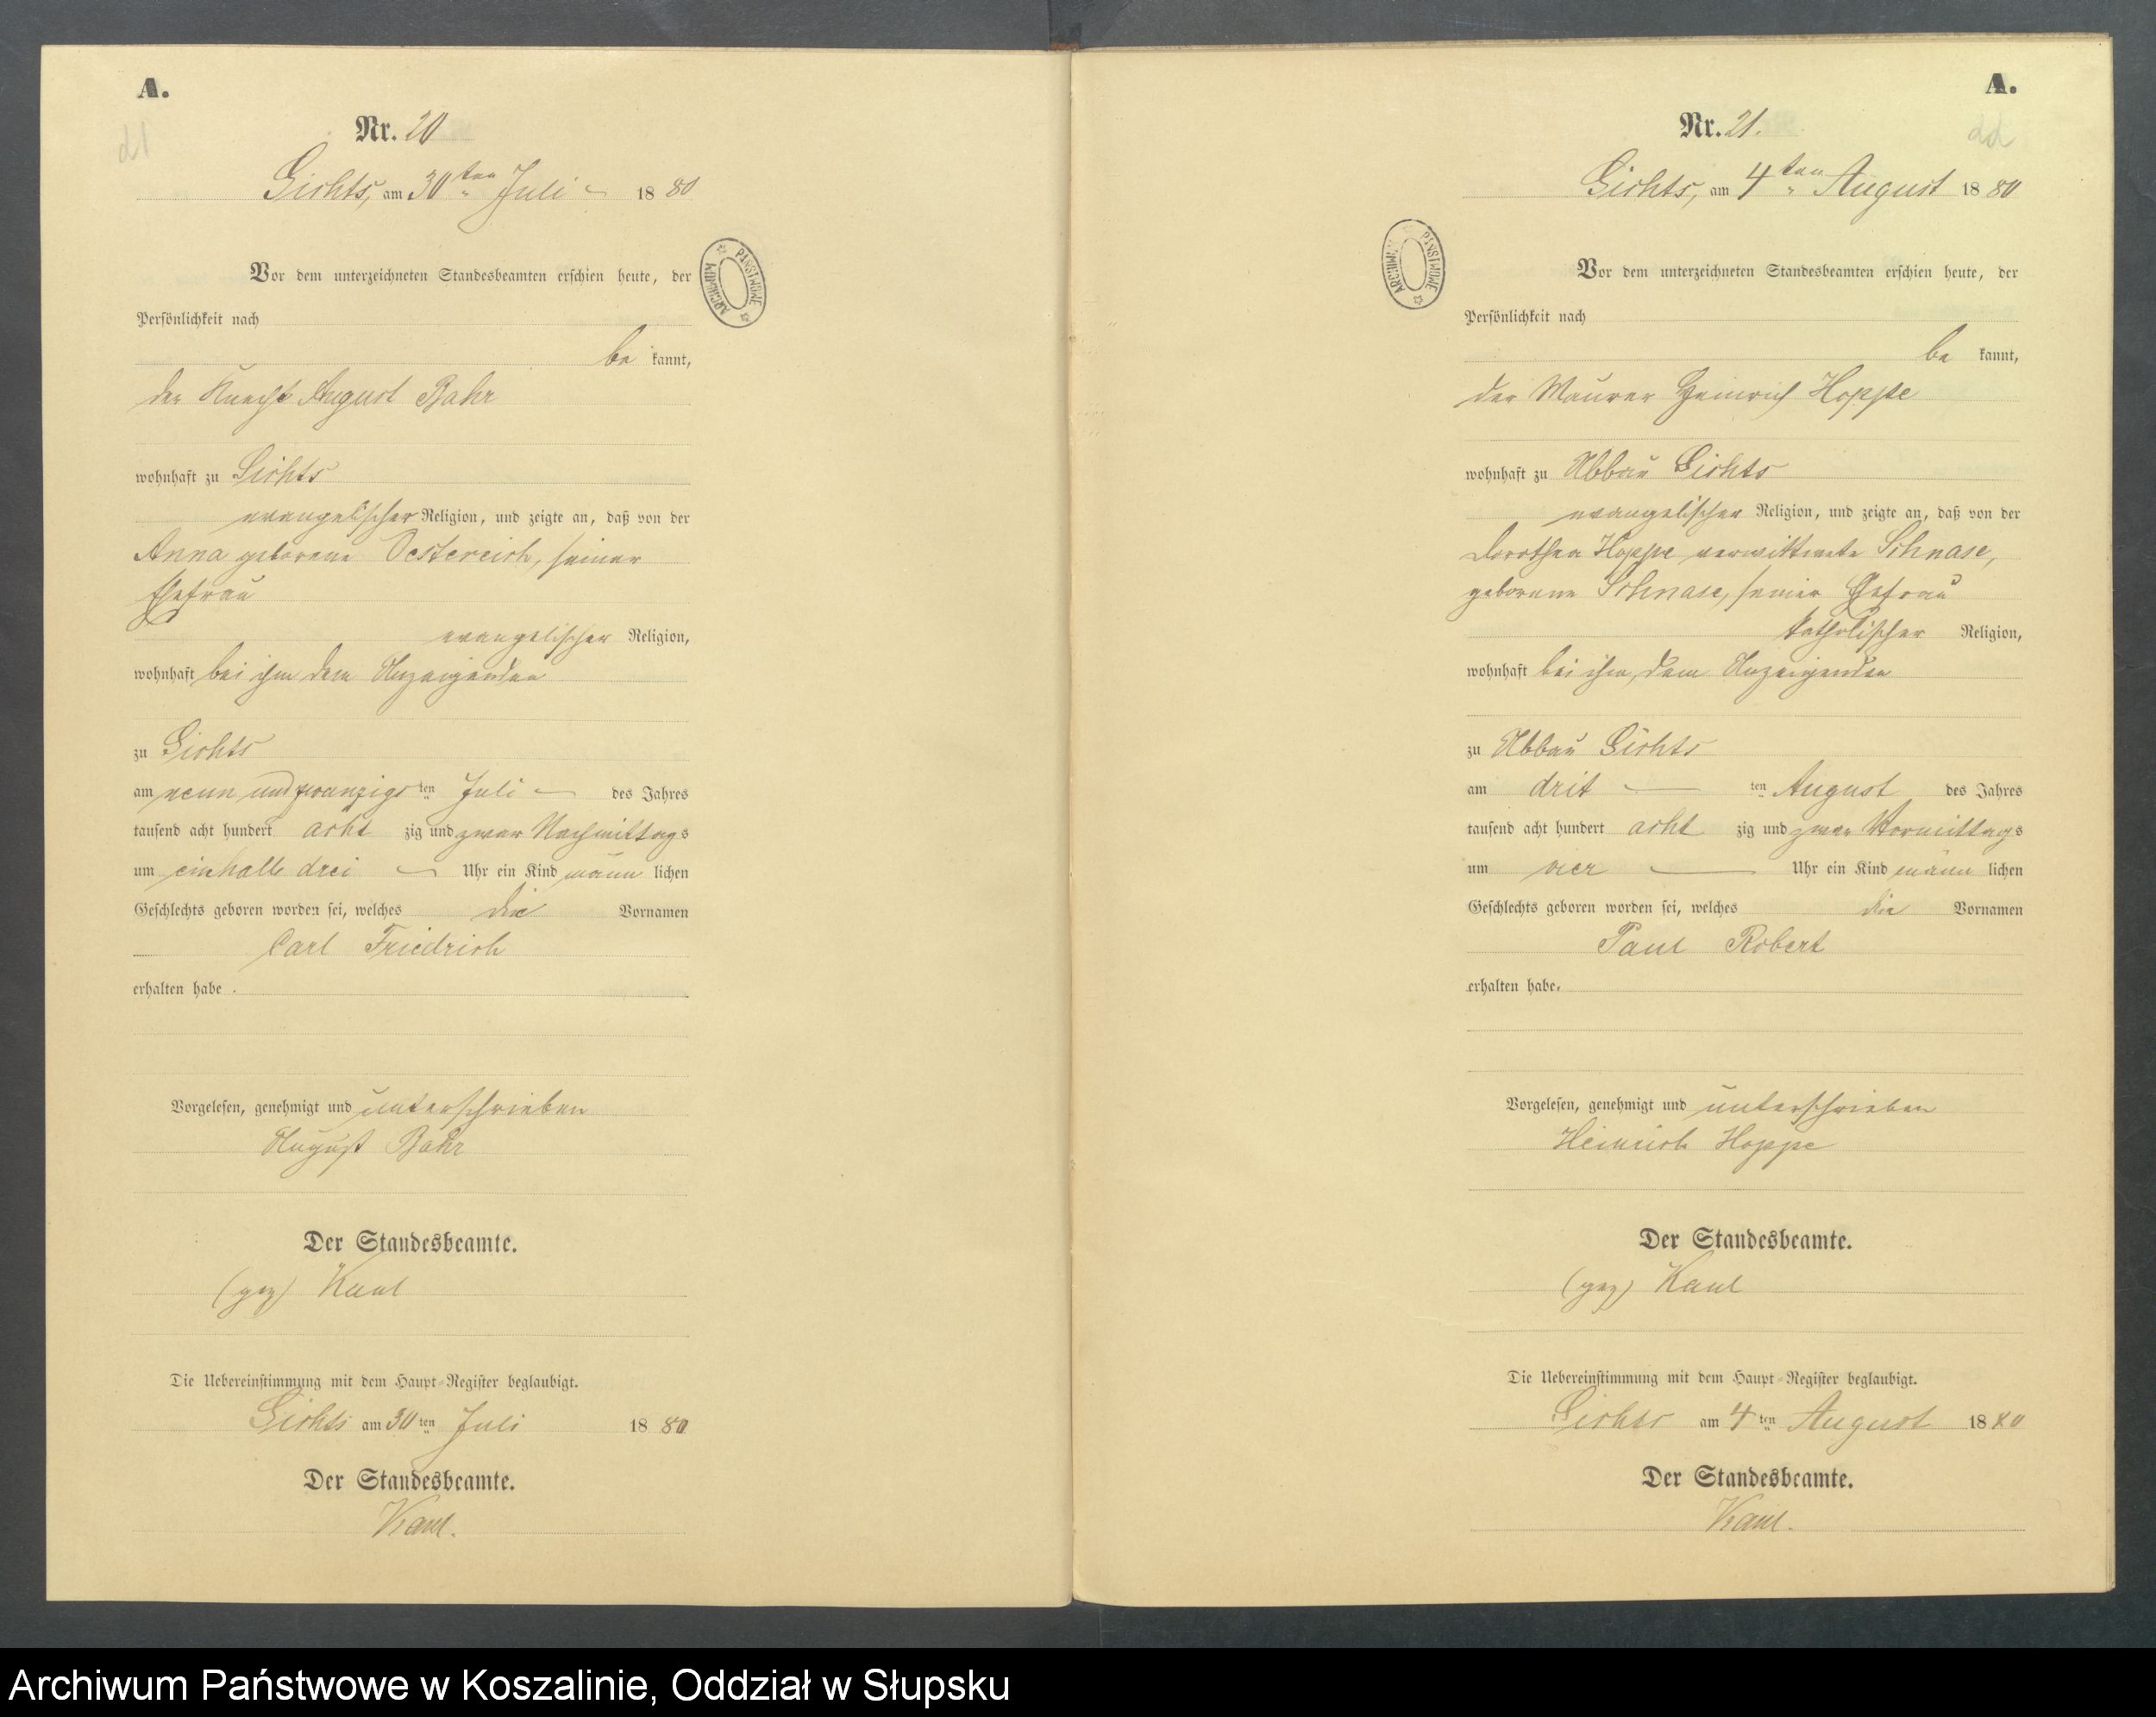 A.
21
Nr. 20
Lischts, am 30ten Juli 1880
Vor dem unterzeichneten Standesbeamten erschien heute, der
ARCHIWUM PAŃSTWOWE
Persönlichkeit nach
be kannt,
der Knecht August Bahr
wohnhaft zu
evangelischer Religion, und zeigte an, daß von der
Anna geborene Oestereich, seiner
Ehefrau
evangelischer Religion,
wohnhaft bei ihm dem Anzeigenden
zu
am neun und zwanzigsten Juli des Jahres
tausend acht hundert acht zig und zwar Nachmittags
um einhalb drei Uhr ein Kind männ lichen
Geschlechts geboren worden sei, welches die Vornamen
Carl Friedrich
erhalten habe.
Vorgelesen, genehmigt und unterschrieben
August Bahr
Der Standesbeamte.
(gez) Kaul
Die Uebereinstimmung mit dem Haupt-Register beglaubigt.
am 30 ten Juli 1880
Der Standesbeamte.
Kaul.
A.
22
Nr. 21.
am 4ten August 1880
Vor dem unterzeichneten Standesbeamten erschien heute, der
ARCHIWUM PAŃSTWOWE
Persönlichkeit nach
be kannt,
der Maurer Heinrich Hoppe
wohnhaft zu Abbau
evangelischer Religion, und zeigte an, daß von der
Dorothea Hoppe verwittwete Schnase,
geborene Schnase, seiner Ehefrau
katholischer Religion,
wohnhaft bei ihm, dem Anzeigenden
zu Abbau
am drit ten August des Jahres
tausend acht hundert acht zig und zwar Vormittags
um vier Uhr ein Kind männ lichen
Geschlechts geboren worden sei, welches die Vornamen
Paul Robert
erhalten habe.
Vorgelesen, genehmigt und unterschrieben
Heinrich Hoppe
Der Standesbeamte.
(gez) Kaul
Die Uebereinstimmung mit dem Haupt-Register beglaubigt.
am 4 ten August 1880
Der Standesbeamte.
Kaul.
Archiwum Państwowe w Koszalinie, Oddział w Słupsku